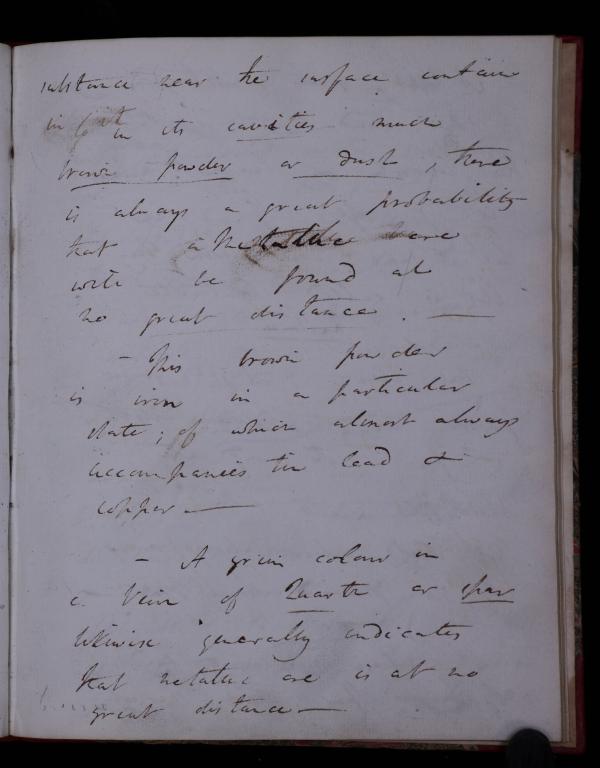 substance near the surface contains
in its cavities much
brown powder or dust, there
is always a great probability
that a Metallic vein
will be found at
no great distance. —
— This brown powder
is iron in a particular
state; of which almost always
accompanies tin lead &
copper —
— A green colour in
a Vein of Quartz or spar
likewise generally indicates
that metallic ore is at no
great distance —